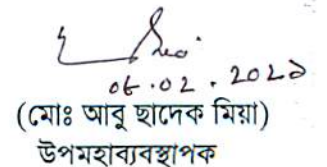 ০৮.০২.২০২১
(মোঃ আবু ছাদেক মিয়া)
উপমহাব্যবস্থাপক